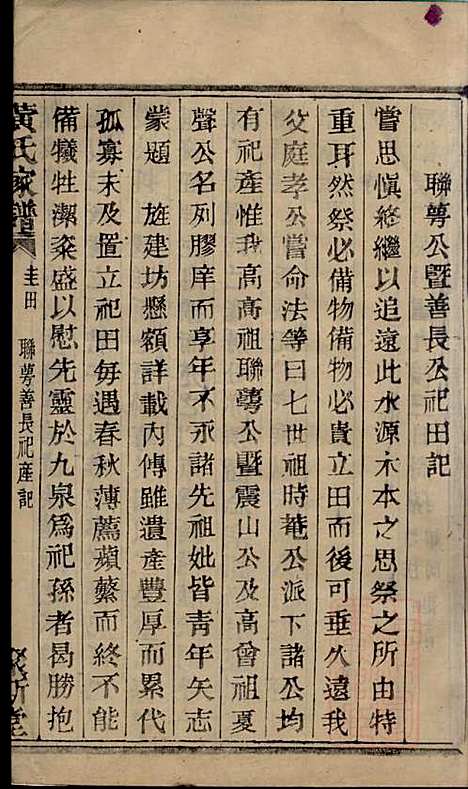 聯蕚公暨善長公祀田記
嘗思愼終繼以追遠此水源木本之思祭之所由特
重耳然祭必備物備物必貴立田而後可垂久遠我
父庭孝公嘗命法等曰七世祖時菴公派下諸公均
有祀產惟我高高祖聯蕚公暨震山公及高曾祖夏
聲公名列膠庠而享年不永諸先祖妣皆靑年矢志
蒙題 旌建坊懸額詳載內傳雖遺產豐厚而累代
孤寡未及置立祀田每遇春秋薄薦蘋蘩而終不能
備犧牲潔粢盛以慰先靈於九泉爲祀孫者曷勝抱
黃氏家譜 圭田 聯蕚善長祀產記